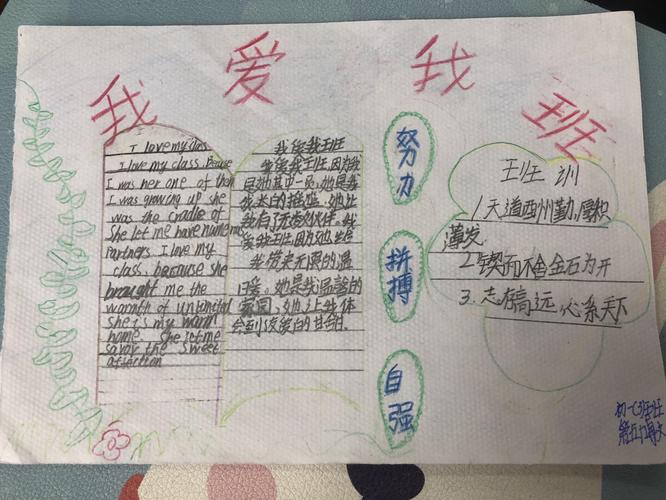 我爱我班
I love my class
I love my class, Because
I was her one of them
I was growing up she
was the cradle of
She let me have numerous
partners I love my
class, because she
brought me the
warmth of unlimited
she is my warm
home. She let me
savor the sweet
affection
我爱我班
我爱我班,因为我
是她其中一员,她是我
成长的摇篮,她让
我有了无数伙伴,我
爱我班因为她给
我带来无限的温
暖。她是我温馨的
家园,她让我体
会到友爱的甘甜.
努力
拼搏
自强
班训
1.天道酬勤,厚积
薄发
2.锲而不舍金石为开
3.志存高远,心系天下